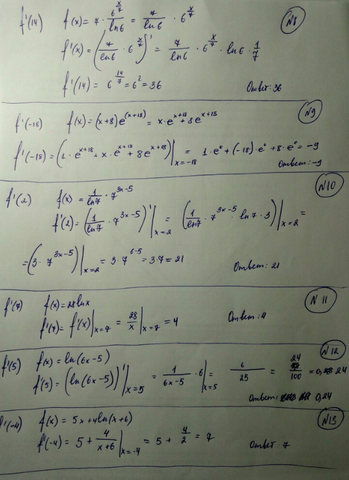 f'(14) f(x) = 7 · 6^(x/7) / ln6 = 7/ln6 · 6^(x/7) N8
f'(x) = (7/ln6 · 6^(x/7))' = 7/ln6 · 6^(x/7) · ln6 · 1/7
f'(14) = 6^(14/7) = 6² = 36 Ответ: 36
f'(-18) f(x) = (x+8)e^(x+18) = x·e^(x+18) + 8e^(x+18) N9
f'(-18) = (1·e^(x+18) + x·e^(x+18) + 8e^(x+18))|x=-18 = 1·e⁰ + (-18)·e⁰ + 8·e⁰ = -9
Ответ: -9
f'(2) f(x) = 1/ln7 · 7^(3x-5) N10
f'(2) = (1/ln7 · 7^(3x-5))'|x=2 = (1/ln7 · 7^(3x-5) ln7 · 3)|x=2 =
= (3·7^(3x-5))|x=2 = 3·7^(6-5) = 3·7 = 21 Ответ: 21
f'(7) f(x) = 28lnx N11
f'(7) = f'(x)|x=7 = 28/x|x=7 = 4 Ответ: 4
f'(5) f(x) = ln(6x-5) N12
f'(5) = (ln(6x-5))'|x=5 = 1/(6x-5) · 6|x=5 = 6/25 = 24/100 = 0,24
Ответ: 0,24
f'(-4) f(x) = 5x+4ln(x+6) N13
f'(-4) = 5 + 4/(x+6)|x=-4 = 5 + 4/2 = 7 Ответ: 7